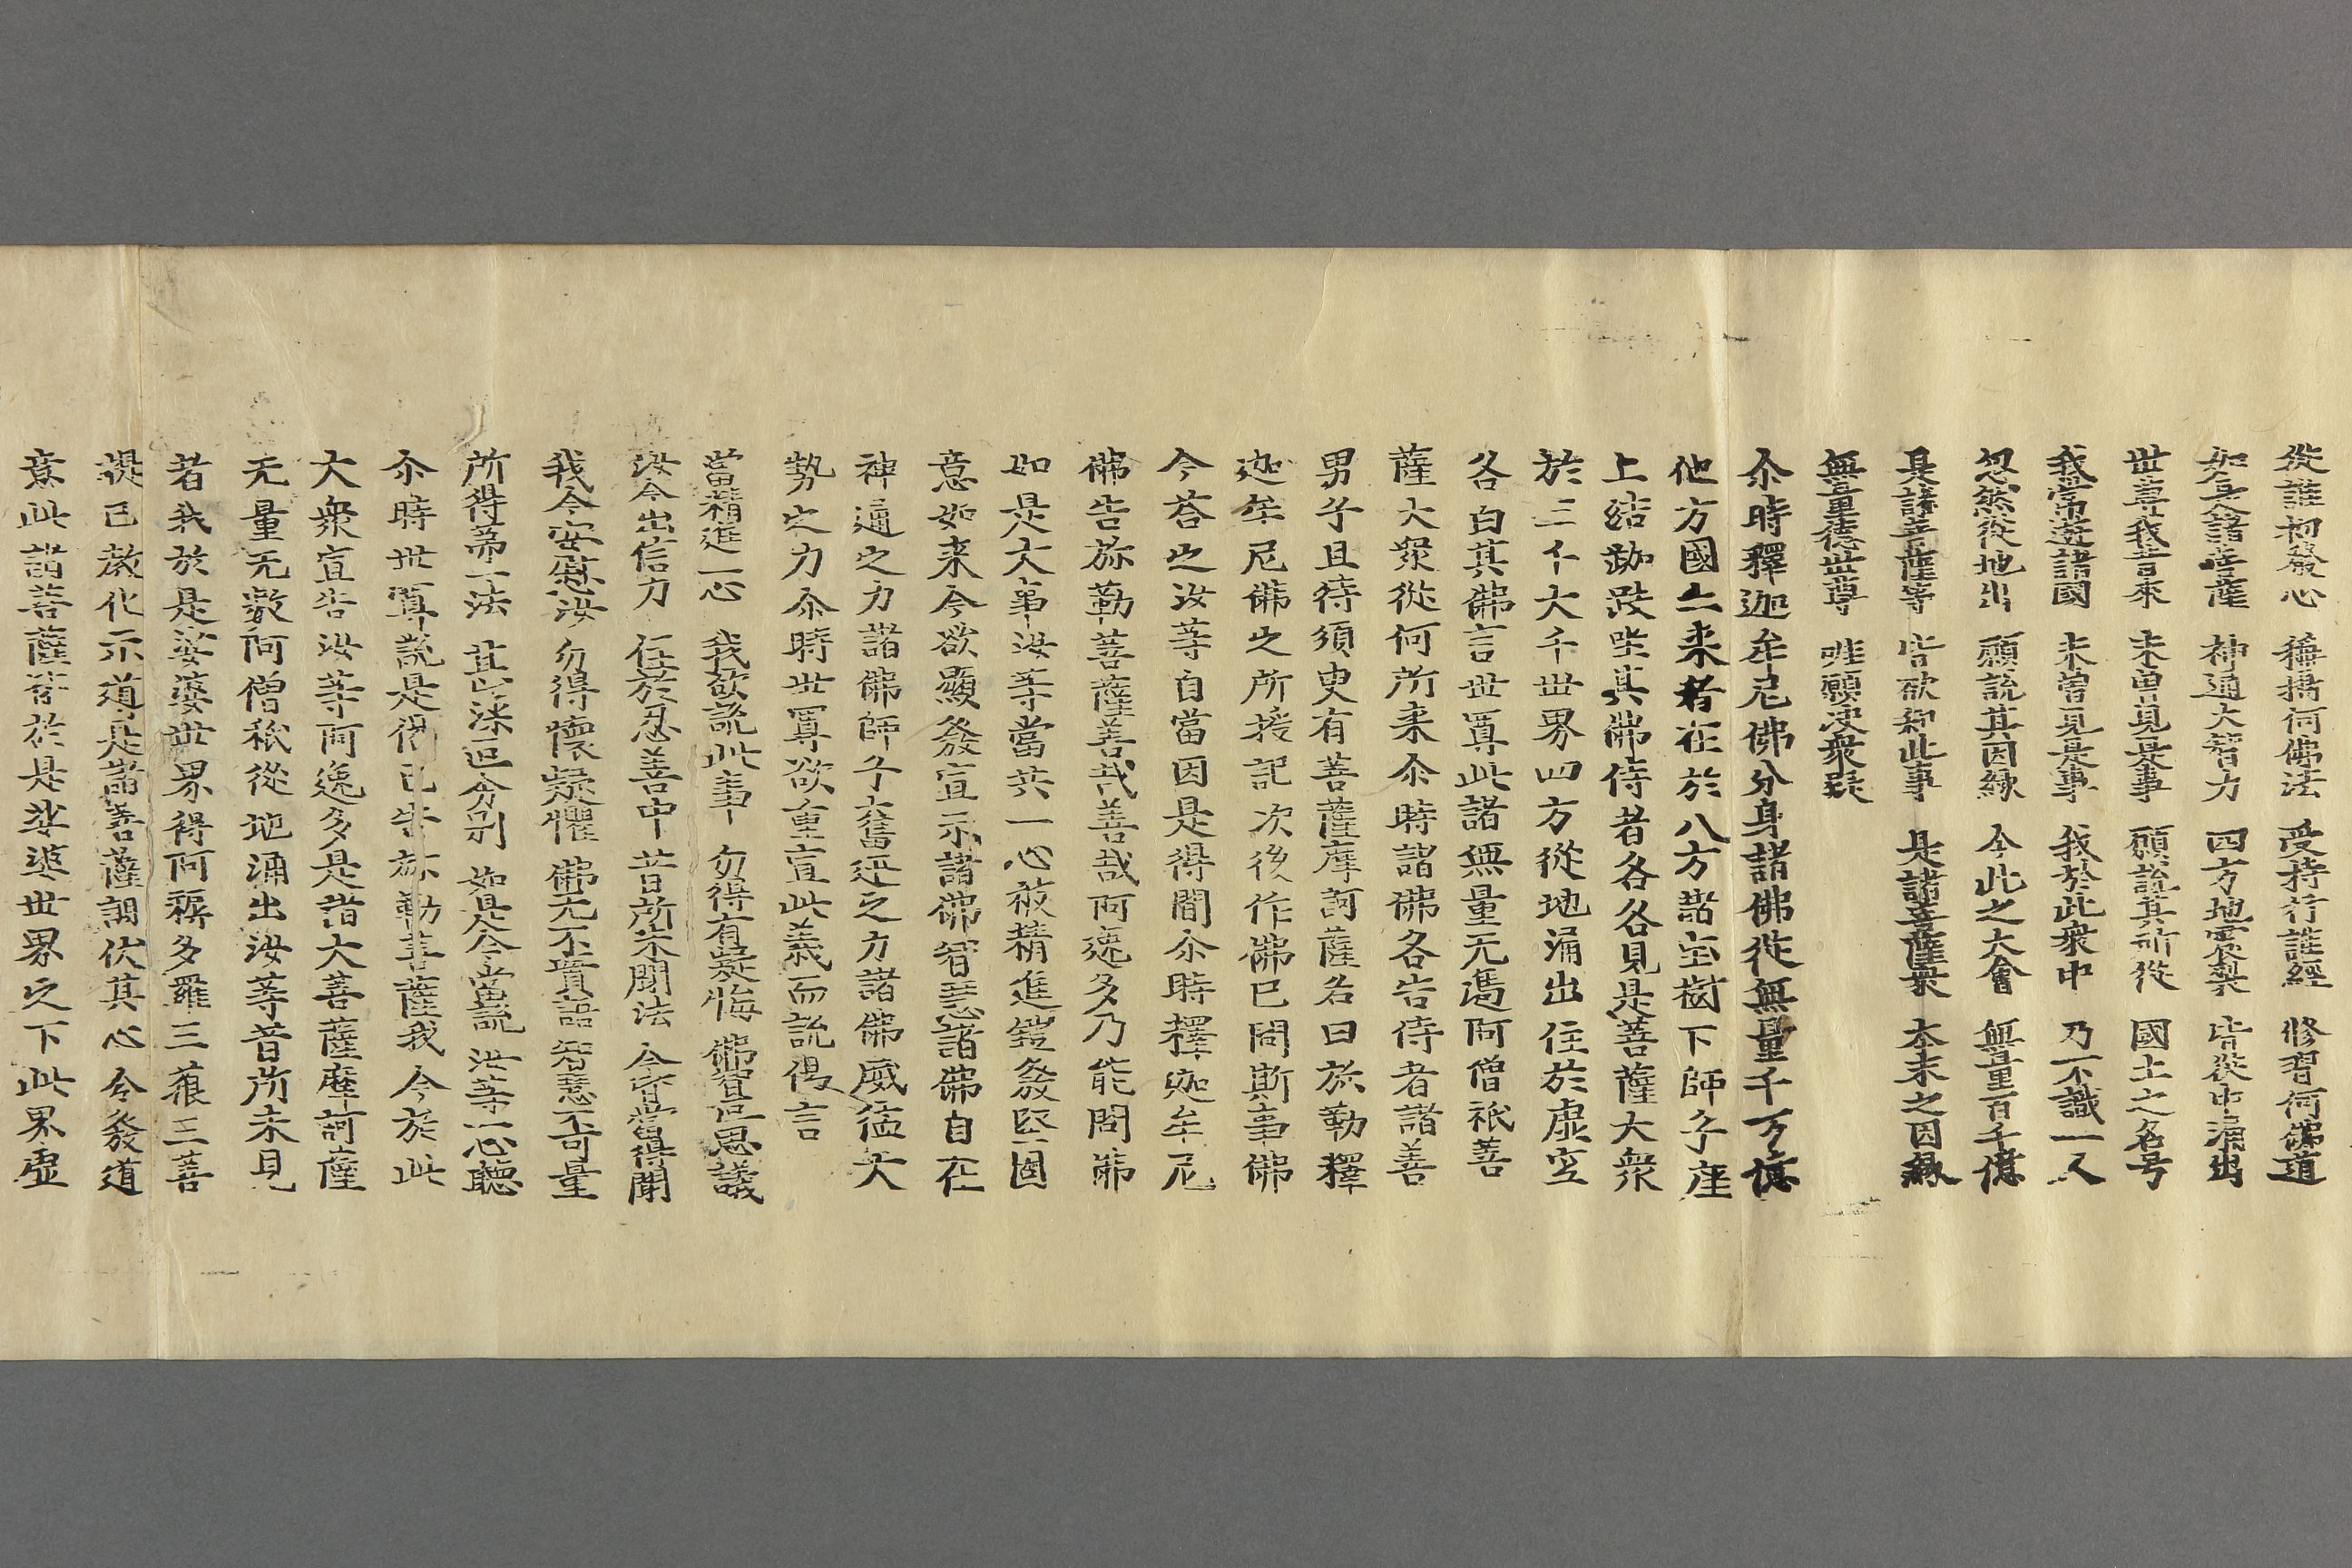 從誰初發心 稱揚何佛法 受持行誰經 修習何佛道
如是諸菩薩 神通大智力 四方地震裂 皆從中涌出
世尊我昔來 未曾見是事 願說其所從 國土之名号
我常遊諸國 未曾見是事 我於此衆中 乃不識一人
忽然從地出 願說其因緣 今此之大會 無量百千億
是諸菩薩等 皆欲知此事 是諸菩薩衆 本末之因緣
無量德世尊 唯願決衆疑
尒時釋迦牟尼佛分身諸佛從無量千万億
他方國土来者在於八方諸宝樹下師子座
上結跏趺坐其佛侍者各各見是菩薩大衆
於三千大千世界四方從地涌出住於虛空
各白其佛言世尊此諸無量无邊阿僧祇菩
薩大衆從何所来尒時諸佛各告侍者諸善
男子且待須臾有菩薩摩訶薩名曰弥勒釋
迦牟尼佛之所授記次後作佛已問斯事佛
今荅之汝等自當因是得聞尒時釋迦牟尼
佛告弥勒菩薩善哉善哉阿逸多乃能問佛
如是大事汝等當共一心被精進鎧發堅固
意如来今欲顯發宣示諸佛智慧諸佛自在
神通之力諸佛師子奮迅之力諸佛威猛大
勢之力尒時世尊欲重宣此義而說偈言
當精進一心 我欲說此事 勿得有疑悔 佛智叵思議
汝今出信力 住於忍善中 昔所未聞法 今皆當得聞
我今安慰汝 勿得懷疑懼 佛无不實語 智慧不可量
所得第一法 甚深叵分別 如是今當說 汝等一心聽
尒時世尊說是偈已告弥勒菩薩我今於此
大衆宣告汝等阿逸多是諸大菩薩摩訶薩
无量无數阿僧祇從地涌出汝等昔所未見
者我於是娑婆世界得阿耨多羅三藐三菩
提已教化示道是諸菩薩調伏其心令發道
意此諸菩薩皆於是娑婆世界之下此界虛